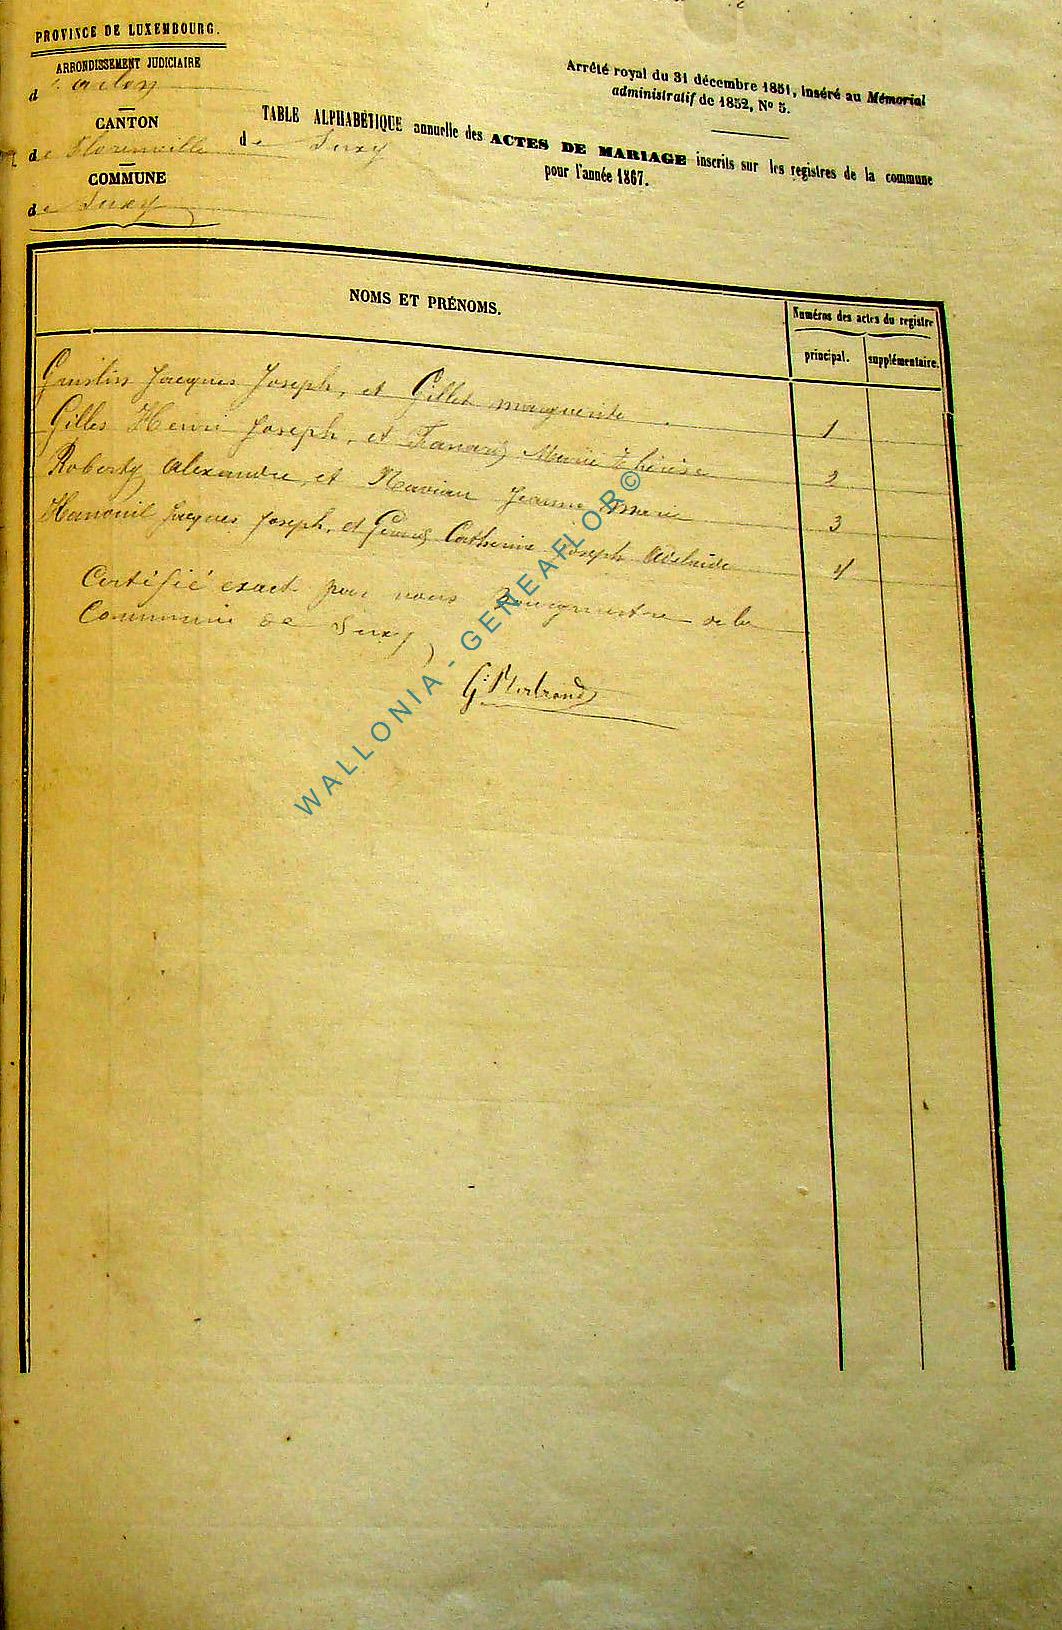 PROVINCE DE LUXEMBOURG.
ARRONDISSEMENT JUDICIAIRE
d'arlon
CANTON
de Florenville
COMMUNE
de Suxy
Arrêté royal du 31 décembre 1851, inséré au Mémorial
administratif de 1852, No 5.
TABLE ALPHABÉTIQUE annuelle des ACTES DE MARIAGE inscrits sur les registres de la commune
de Suxy
pour l'année 1867.
NOMS ET PRÉNOMS.
Numéros des actes du registre
principal. supplémentaire.
Jacques Joseph, et Gillet marguerite 1
Gilles Henri Joseph, et Marie Thérèse 2
Alexandre, et Jeanne marie 3
Jacques Joseph, et Catherine Joseph Adelaide 4
Certifié exact par nous Bourgmestre de la
Commune de Suxy
WALLONIA - GENEAFLOR©